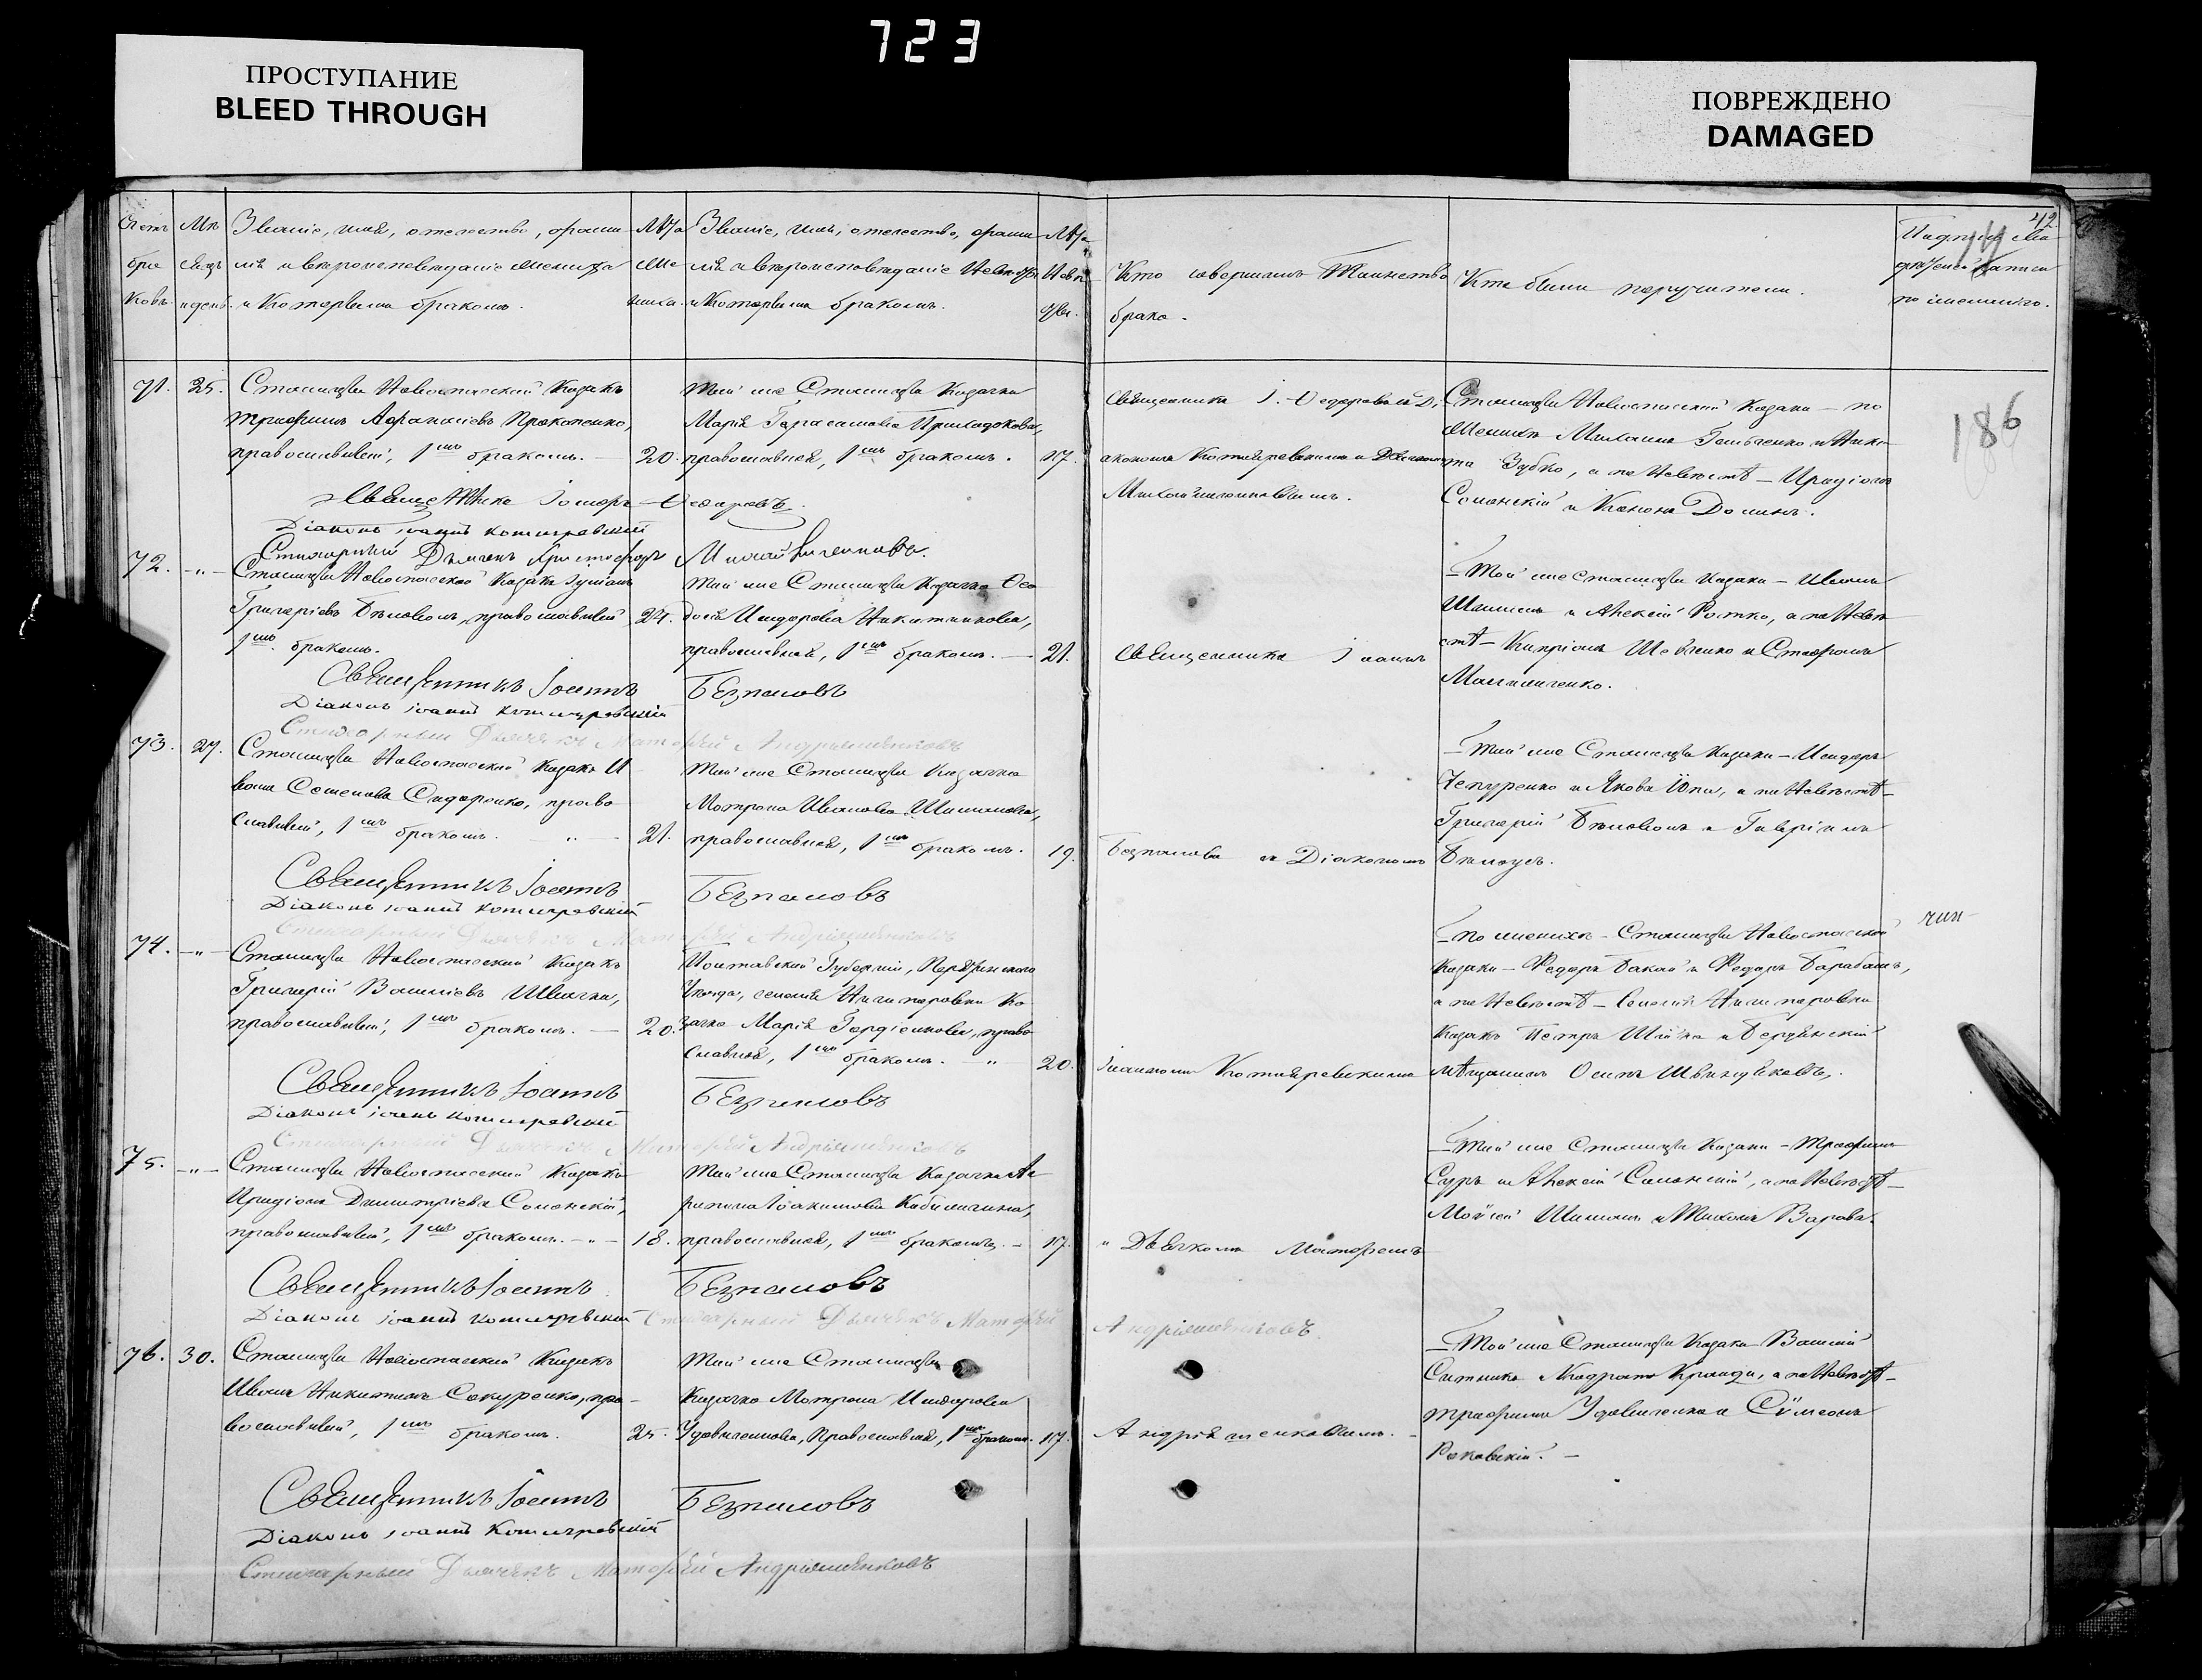 723
ПРОСТУПАНИЕ
BLEED THROUGH
ПОВРЕЖДЕНО
DAMAGED
42
186
Счетъ
бра
ковъ
Мѣ
сяцъ
и день.
Званіе, имя, отечество, фами
лія и вѣроисповѣданіе жениха
и которымъ бракомъ.
Лѣта
же
ниха.
Званіе, имя, отечество, фами
лія и вѣроисповѣданіе невѣсты
и которымъ бракомъ.
Лѣта
невѣ
сты.
Кто совершалъ Таинство
брака.
Кто были поручители.
по желанію.
71. 25. Станицы Новоспаской Казакъ
Трофимъ Афанасіевъ Прокопенко,
православный, 1мъ бракомъ. — 20.
Той же Станицы Казачка
Марія Герасимова Приладокова,
православная, 1мъ бракомъ. 17.
Священникъ І. Ѳедоровъ съ Ді
акономъ Котляревскимъ и Дьячкомъ
Станицы Новоспаской казаки — по
женихѣ Михаилъ Гольченко и Ники
та Зубко, а по невѣстѣ — Иродіонъ
Солонскій и Кононъ Долинъ.
Священникъ Іосифъ Ѳедоровъ
Діаконъ Іоаннъ Котляревскій
Стихарный Дьячекъ Христофоръ
72. —"— Станицы Новоспаской Казакъ Іуліанъ
Григоріевъ Бѣловолъ, православный 24.
1мъ бракомъ.
Той же Станицы Казачка Ѳео
досія Исидорова Никитинова,
православная, 1мъ бракомъ. — 21.
Священникъ Іоаннъ
— Той же Станицы Казаки — Иванъ
Шаминъ и Алексій Ротко, а по невѣ
стѣ — Кипріанъ Шевченко и Стефанъ
Священникъ Іоаннъ Безпаловъ
Діаконъ Іоаннъ Котляревскій
Стихарный Дьячекъ Матфей Андріяшенковъ
73. 27. Станицы Новоспаской Казакъ И
ванъ Семеновъ Сидоренко, право
славный, 1мъ бракомъ. — " — 21.
Той же Станицы Казачка
Матрона Иванова Шиманова,
православная, 1мъ бракомъ. 19.
Безпаловъ съ Діакономъ
— Той же Станицы Казаки — Исидоръ
Чепуренко и Яковъ Юпа, а по невѣстѣ —
Григорій Бѣловолъ и Гавріилъ
Бѣлоусъ.
Священникъ Іоаннъ Безпаловъ
Діаконъ Іоаннъ Котляревскій
Стихарный Дьячекъ Матфей Андріяшенковъ
74. —"— Станицы Новоспаской Казакъ
Григорій Василіевъ Швачка,
православный, 1мъ бракомъ. — 20.
Полтавской Губерніи,
Уѣзда, селенія Нигинаровки Ка
зачка Марія Гордіенкова, право
славная, 1мъ бракомъ. — " 20.
Іоанномъ Котляревскимъ
— По женихѣ — Станицы Новоспаской
Казаки — Федоръ Бакай и Федоръ Барабашъ,
а по невѣстѣ — Селенія Нигинаровки
Казакъ Петръ Шійка и Бердянскій
мѣщанинъ Осипъ Швындиковъ.
Священникъ Іоаннъ Безпаловъ
Діаконъ Іоаннъ Котляревскій
Стихарный Дьячекъ Матфей Андріяшенковъ
75. —"— Станицы Новоспаской Казакъ
Иродіонъ Димитріевъ Солонскій,
православный, 1мъ бракомъ. — " — 18.
Той же Станицы Казачка Ага
рипина Іоакимова Кабилягина,
православная, 1мъ бракомъ. — 17.
" Дьячкомъ Матфеемъ
— Той же Станицы Казаки — Трофимъ
Суръ и Алексій Солонскій, а по невѣстѣ —
Мойсей Шиманъ и Тихонъ Варава.
Священникъ Іоаннъ Безпаловъ
Діаконъ Іоаннъ Котляревскій Стихарный Дьячекъ Матфей Андріяшенковъ.
76. 30. Станицы Новоспаской Казакъ
Иванъ Никитинъ Сакуренко, пра-
вославный, 1мъ бракомъ. 25.
Той же Станицы
Казачка Матрона Исидорова
Удовиченкова, Православная, 1мъ бракомъ. 17.
Андріяшенковымъ.
— Той же Станицы Казаки Василій
Ситникъ и Кодратъ Кравцъ, а по невѣстѣ —
Трофимъ Удовиченко и Сѵмеонъ
Раковскій. —
Священникъ Іоаннъ Безпаловъ
Діаконъ Іоаннъ Котляревскій
Стихарный Дьячекъ Матфей Андріяшенковъ